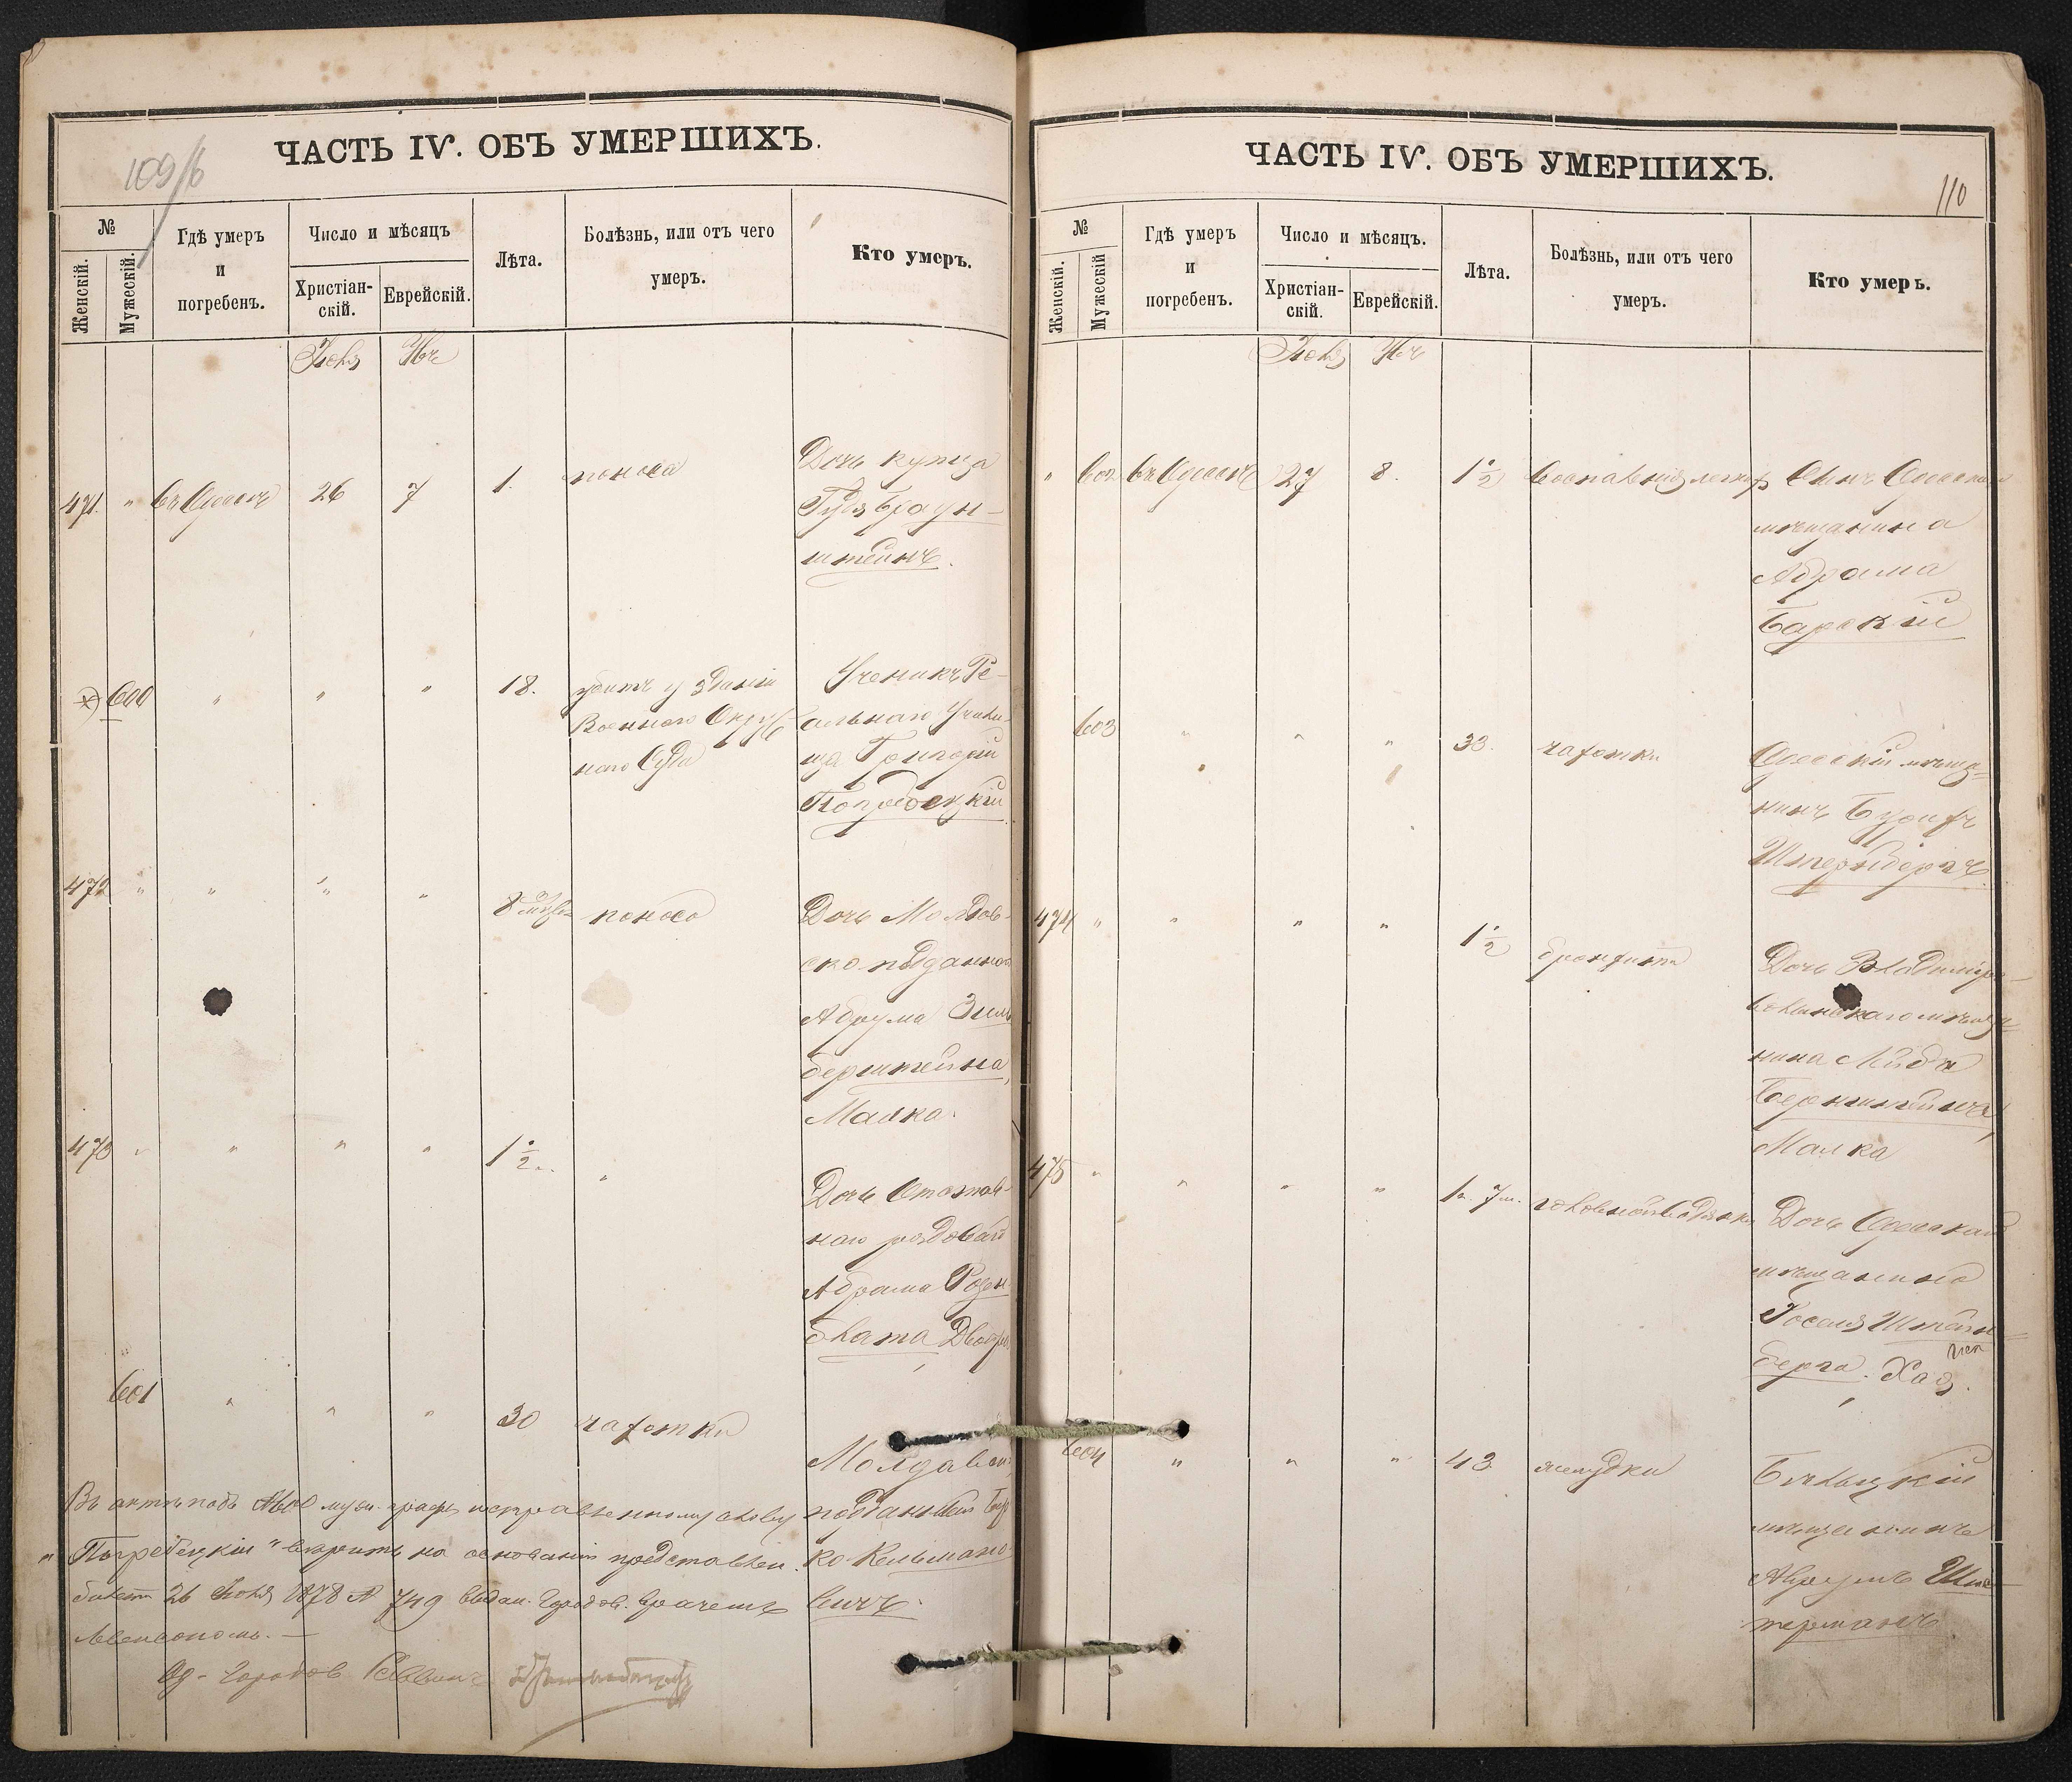 109/б
ЧАСТЬ IV. ОБЪ УМЕРШИХЪ.
№
Женскій.
Мужескій.
Гдѣ умеръ
и
погребенъ.
Число и мѣсяцъ
Христіан-
скій.
Еврейскій.
Лѣта.
Болѣзнь, или отъ чего
умеръ.
Кто умеръ.
Іюля
471. " въ Одессѣ 26 7 1. поноса
Дочь купца
Браун-
штейнъ.
600 " " " 18. убитъ у зданія
Военнаго Окруж-
наго Суда
Ученикъ Ре-
альнаго Учили-
ща Григорій
472 " " " " 8 мѣсяц поноса
Дочь Молдав-
ско подданнаго
Абрума Зиль
берштейна,
Малка.
473 " " " " 1 1/2 "
Дочь Отстав-
наго рядоваго
Абрама Розен-
блата Двойра
601 " " " 30 чахотки
Молдавск
подданный Бер
ко Кельмано
вичъ.
Въ актѣ подъ №600 муж. графы исправленному слову
" Погребецкій " вѣрить на основаніи представлен.
билет 26 Іюня 1878 № 749 выдан. Городов. врачемъ
Од. Городов Раввинъ
ЧАСТЬ IV. ОБЪ УМЕРШИХЪ.
110
№
Женскій.
Мужескій
Гдѣ умеръ
и
погребенъ.
Число и мѣсяцъ.
Христіан-
скій.
Еврейскій.
Лѣта.
Болѣзнь, или отъ чего
умеръ.
Кто умеръ.
Іюля
" 602 въ Одессѣ 27 8. 1 1/2 воспаленія легкихъ
Сынъ Одесскаго
мѣщанина
Абрама
Барскій
603 " " " 33. чахотки
Одесскій мѣща-
нинъ
Штернбергъ
474 " " " " 1 1/2 бронхита
Дочь Владимір-
волынскаго мѣща-
нина Лейба
Бернштейна,
Малка
475 " " " " 1г. 7м. головной водянки
Дочь Одесскаго
мѣщанина
Іоселя Штейн-
берга. Хая.
604 " " " 43 желудки
Бѣльцкій
мѣщанинъ
Аврумъ